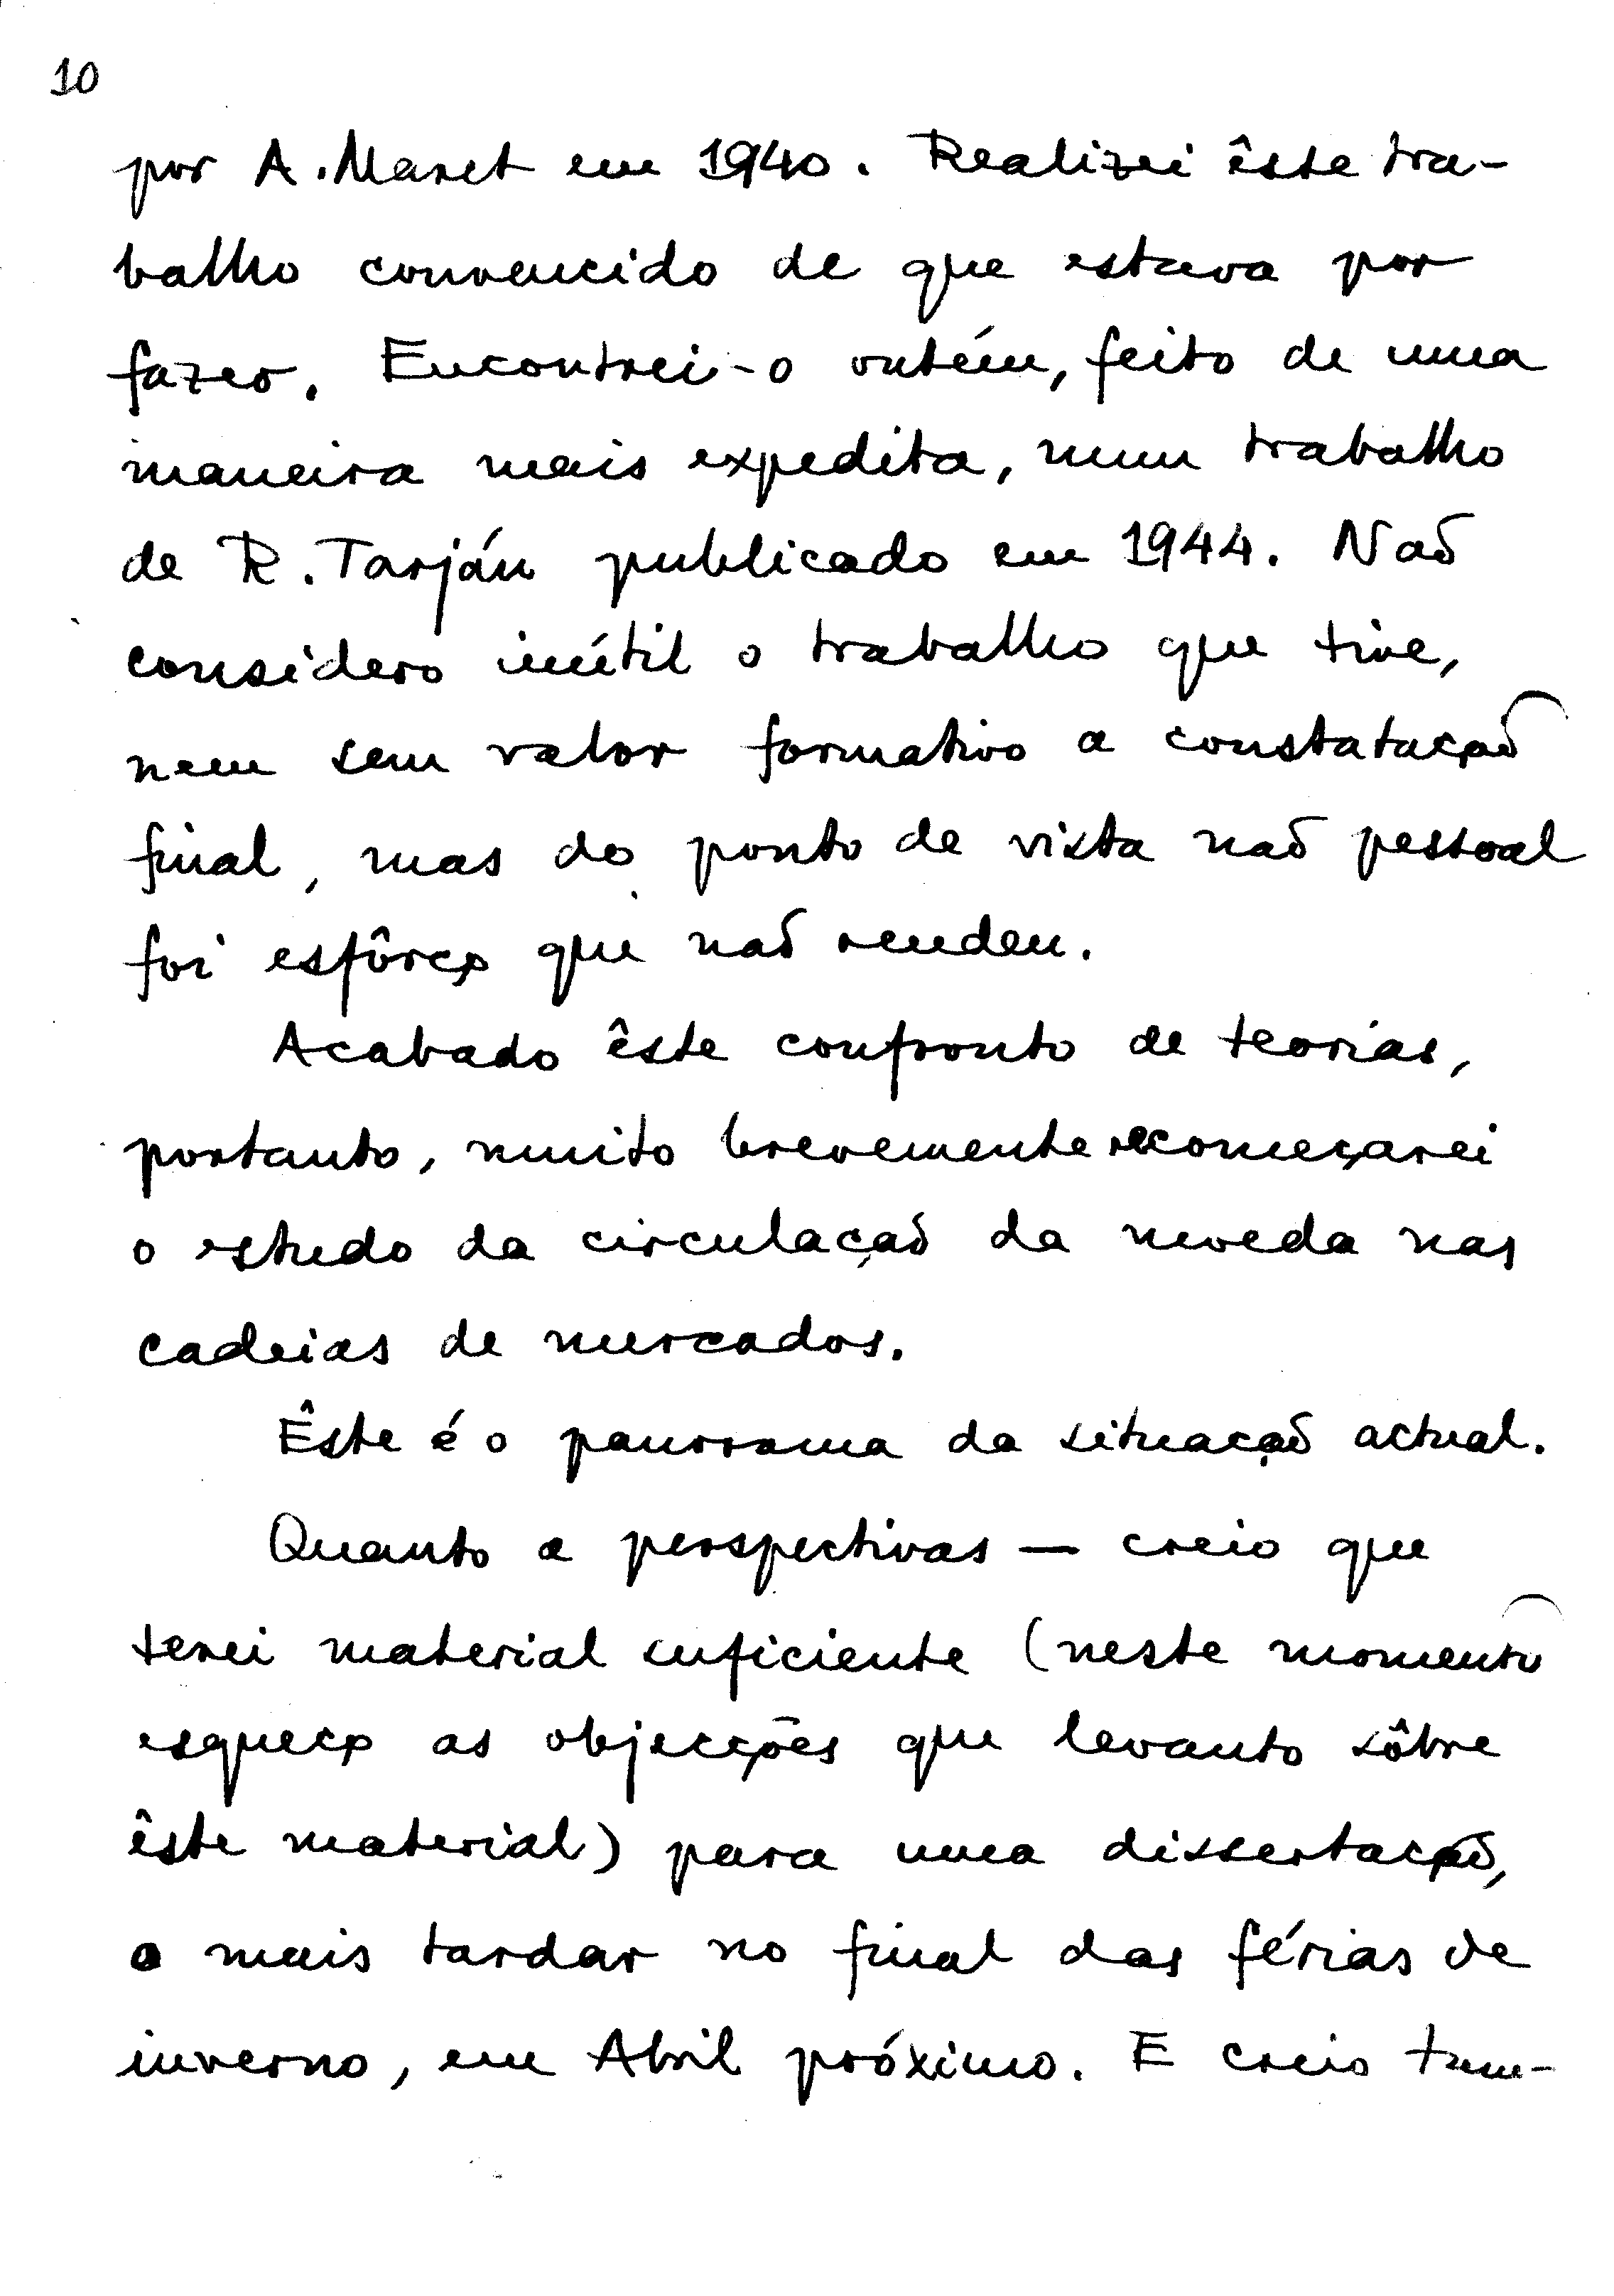 10
por A. Maret em 1940. Realizei êste tra-
balho convencido de que estava por
fazer. Encontrei-o ontém, feito de uma
maneira mais expedita, num trabalho
de R. Tarján publicado em 1944. Não
considero inútil o trabalho que tive,
nem sem valor formativo a constatação
final, mas do ponto de vista não pessoal
foi esfôrço que não rendeu.
Acabado êste confronto de teorias,
portanto, muito brevemente recomeçarei
o estudo da circulação da moeda nas
cadeias de mercados.
Êste é o panorama da situação actual.
Quanto a perspectivas — creio que
terei material suficiente (neste momento
esqueço as objecções que levanto sôbre
êste material) para uma dissertação,
o mais tardar no final das férias de
inverno, em Abril próximo. E creio tam-